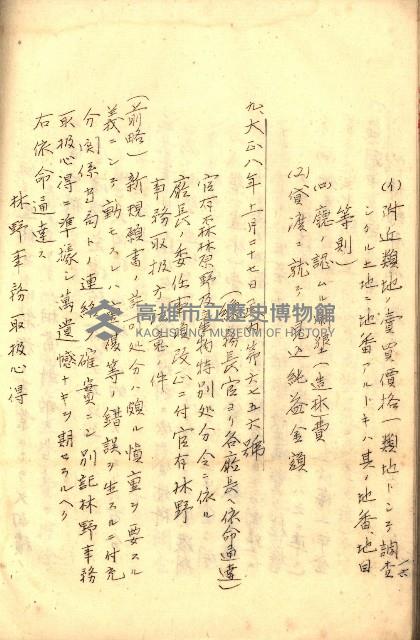 一六
(イ) 附近類地ノ賣買價格(類地トシテ調査
シタル土地ニ地番アルトキハ其ノ地番、地目
等則)
(ロ) 廳ノ認ムル開墾(造林)費
(2) 貸渡ニ就テハ 込純益金額
九、大正八年十一月二十七日 第六七五六號
(總務長官ヨリ各廳長ヘ依命通達)
官有森林原野及産物特別処分令ニ依ル
廳長ヘ委任 改正ニ付官有林野
事務取扱方ノ件
(前略)新規 書 処分ハ頗ル慎重ヲ要スル
義ニシテ動モスレハ 等ノ錯誤ヲ生スルニ付充
分関係 局トノ連絡ヲ確實ニシ別記林野事務
取扱心得ニ準據シ萬遺憾ナキヲ期セラルヘシ
右依命通達ス
林野事務取扱心得
高雄市立歷史博物館
KAOHSIUNG MUSEUM OF HISTORY